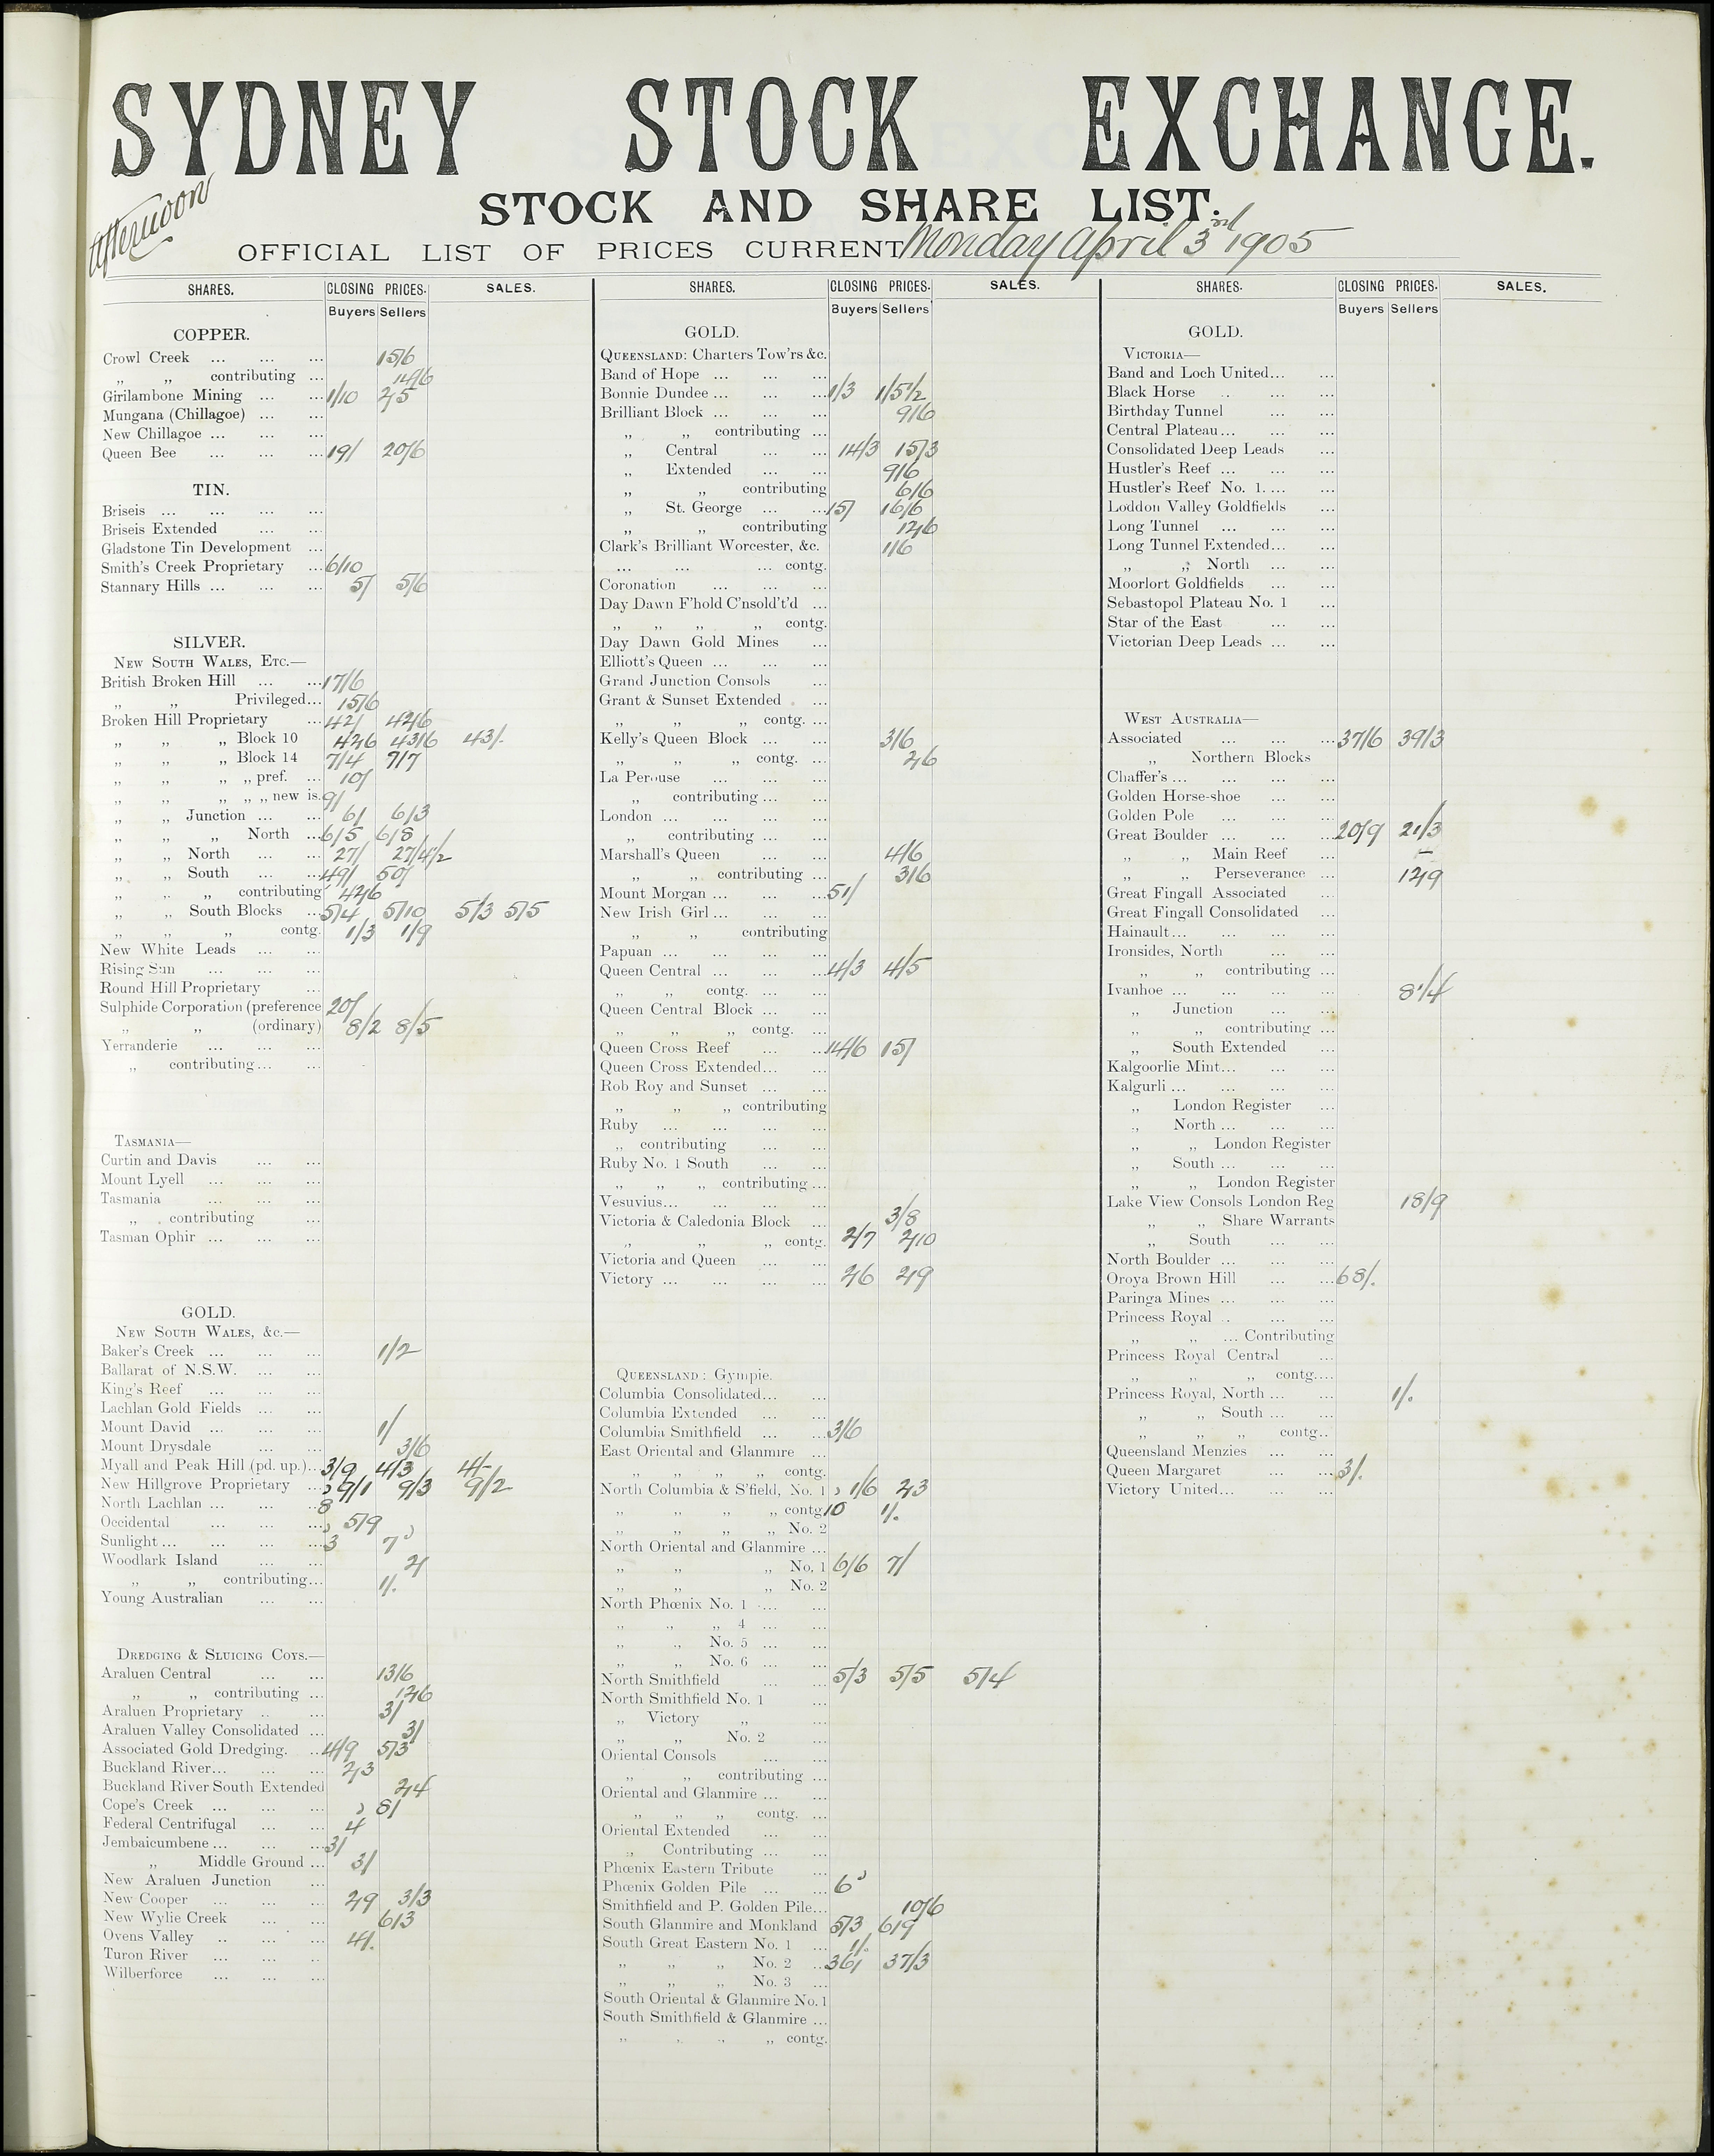 SYDNEY STOCK EXCHANGE.
STOCK AND SHARE LIST.
Afternoon
OFFICIAL LIST OF PRICES CURRENT Monday April 3rd 1905
SHARES. CLOSING PRICES. SALES.
Buyers Sellers
COPPER.
Crowl Creek ... ... ... 15/6
„ „ contributing ... 14/6
Girilambone Mining ... ... 1/10 2/5
Mungana (Chillagoe) ... ...
New Chillagoe ... ... ...
Queen Bee ... ... ... 19/ 20/6
TIN.
Briseis ... ... ... ...
Briseis Extended ... ...
Gladstone Tin Development ...
Smith's Creek Proprietary ... 6/10
Stannary Hills ... ... ... 5/ 5/6
SILVER.
NEW SOUTH WALES, ETC.—
British Broken Hill ... ... 17/6
„ „ Privileged... 15/6
Broken Hill Proprietary ... 42/ 42/6
„ „ „ Block 10 42/6 43/6 43/.
„ „ „ Block 14 7/4 7/7
„ „ „ „ pref. ... 10/
„ „ „ „ „ new is. 9/
„ „ Junction ... ... 6/ 6/3
„ „ „ North ... 6/5 6/8
„ „ North ... ... 27/ 27/4 1/2
„ „ South ... ... 49/ 50/
„ „ „ contributing 42/6
„ „ South Blocks ... 5/4 5/10 5/3 5/5
„ „ „ contg. 1/3 1/9
New White Leads ... ...
Rising Sun ... ... ...
Round Hill Proprietary ...
Sulphide Corporation (preference 20/
„ „ (ordinary) 8/2 8/5
Yerranderie ... ... ...
„ contributing... ...
TASMANIA—
Curtin and Davis ... ...
Mount Lyell ... ... ...
Tasmania ... ... ...
„ contributing ...
Tasman Ophir ... ... ...
GOLD.
NEW SOUTH WALES, &c.—
Baker's Creek ... ... ... 1/2
Ballarat of N.S.W. ... ...
King's Reef ... ... ...
Lachlan Gold Fields ... ...
Mount David ... ... ... 1/
Mount Drysdale ... ... 3/6
Myall and Peak Hill (pd. up.)... 3/9 4/3 4/-
New Hillgrove Proprietary ... 9/1 9/3 9/2
North Lachlan ... ... ... 8
Occidental ... ... ... 5/9
Sunlight ... ... ... ... 3 7
Woodlark Island ... ... 2/
„ „ contributing... 1/.
Young Australian ... ...
DREDGING & SLUICING COYS.—
Araluen Central ... ... 13/6
„ „ contributing ... 12/6
Araluen Proprietary .. ... 3/
Araluen Valley Consolidated ... 3/
Associated Gold Dredging. ... 4/9 5/3
Buckland River... ... ... 2/3
Buckland River South Extended 2/4
Cope's Creek ... ... ... 8/
Federal Centrifugal ... ... 4
Jembaicumbene ... ... ... 3/
„ Middle Ground ... 3/
New Araluen Junction ...
New Cooper ... ... ... 2/9 3/3
New Wylie Creek ... ... 6/3
Ovens Valley .. ... ... 4/.
Turon River ... ... ..
Wilberforce ... ... ...
SHARES. CLOSING PRICES. SALES.
Buyers Sellers
GOLD.
QUEENSLAND: Charters Tow'rs &c.
Band of Hope ... ... ...
Bonnie Dundee ... ... ... 1/3 1/5 1/2
Brilliant Block ... ... ... 9/6
„ „ contributing ...
„ Central ... ... 14/3 15/3
„ Extended ... ... 9/6
„ „ contributing 6/6
„ St. George ... ... 15/ 16/6
„ „ contributing 12/6
Clark's Brilliant Worcester, &c. 1/6
... ... ... contg.
Coronation ... ... ...
Day Dawn F'hold C'nsold't'd ...
„ „ „ „ contg.
Day Dawn Gold Mines ...
Elliott's Queen ... ... ...
Grand Junction Consols ...
Grant & Sunset Extended . ...
„ „ „ contg. ...
Kelly's Queen Block ... ... 3/6
„ „ „ contg. ... 2/6
La Perouse ... ... ...
„ contributing ... ...
London ... ... ... ...
„ contributing ... ...
Marshall's Queen ... ... 4/6
„ „ contributing ... 3/6
Mount Morgan ... ... ... 51/
New Irish Girl ... ... ...
„ „ contributing
Papuan ... ... ... ...
Queen Central ... ... ... 4/3 4/5
„ „ contg. ... ...
Queen Central Block ... ...
„ „ „ contg. ...
Queen Cross Reef ... ... 14/6 15/
Queen Cross Extended... ...
Rob Roy and Sunset ... ...
„ „ „ contributing
Ruby ... ... ... ...
„ contributing ... ...
Ruby No. 1 South ... ...
„ „ „ contributing ...
Vesuvius... ... ... ...
Victoria & Caledonia Block ... 3/8
„ „ „ contg. 2/7 2/10
Victoria and Queen ... ...
Victory ... ... ... ... 2/6 2/9
QUEENSLAND: Gympie.
Columbia Consolidated... ...
Columbia Extended ... ...
Columbia Smithfield ... ... 3/6
East Oriental and Glanmire ...
„ „ „ „ contg.
North Columbia & S'field, No. 1 1/6 2/3
„ „ „ „ contg 10 1/.
„ „ „ „ No. 2
North Oriental and Glanmire ...
„ „ „ No. 1 6/6 7/
„ „ „ No. 2
North Phœnix No. 1 ... ...
„ „ „ 4 ... ...
„ „ No. 5 ... ...
„ „ No. 6 ... ...
North Smithfield ... ... 5/3 5/5 5/4
North Smithfield No. 1 ...
„ Victory „ ...
„ „ No. 2 ...
Oriental Consols ... ...
„ „ contributing ...
Oriental and Glanmire ... ...
„ „ „ contg. ...
Oriental Extended ... ...
„ Contributing ... ...
Phœnix Eastern Tribute ...
Phœnix Golden Pile ... ... 6
Smithfield and P. Golden Pile... 10/6
South Glanmire and Monkland 5/3 6/9
South Great Eastern No. 1 ... 1/.
„ „ „ No. 2 ... 36/ 37/3
„ „ „ No. 3 ...
South Oriental & Glanmire No. 1
South Smithfield & Glanmire ...
„ „ „ „ contg.
SHARES. CLOSING PRICES. SALES.
Buyers Sellers
GOLD.
VICTORIA—
Band and Loch United... ...
Black Horse .. ... ...
Birthday Tunnel ... ...
Central Plateau... ... ...
Consolidated Deep Leads ...
Hustler's Reef ... ... ...
Hustler's Reef No. 1. ... ...
Loddon Valley Goldfields ...
Long Tunnel ... ... ...
Long Tunnel Extended... ...
„ „ North ... ...
Moorlort Goldfields ... ...
Sebastopol Plateau No. 1 ...
Star of the East ... ...
Victorian Deep Leads ... ...
WEST AUSTRALIA—
Associated ... ... ... 37/6 39/3
„ Northern Blocks
Chaffer's ... ... ... ...
Golden Horse-shoe ... ...
Golden Pole ... ... ...
Great Boulder ... ... ... 20/9 21/3
„ „ Main Reef ...
„ „ Perseverance ... 12/9
Great Fingall Associated ...
Great Fingall Consolidated ...
Hainault... ... ... ...
Ironsides, North ... ...
„ „ contributing ...
Ivanhoe ... ... ... ... 8 1/4
„ Junction ... ...
„ „ contributing ...
„ South Extended ...
Kalgoorlie Mint... ... ...
Kalgurli ... ... ... ...
„ London Register ...
„ North ... ... ...
„ „ London Register
„ South ... ... ...
„ „ London Register
Lake View Consols London Reg 18/9
„ „ Share Warrants
„ South ... ...
North Boulder ... ... ...
Oroya Brown Hill ... ... 68/.
Paringa Mines ... ... ...
Princess Royal .. ... ...
„ „ ... Contributing
Princess Royal Central ...
„ „ „ contg....
Princess Royal, North ... ... 1/.
„ „ South ... ...
„ „ „ contg..
Queensland Menzies ... ...
Queen Margaret ... ... 3/.
Victory United... ... ...